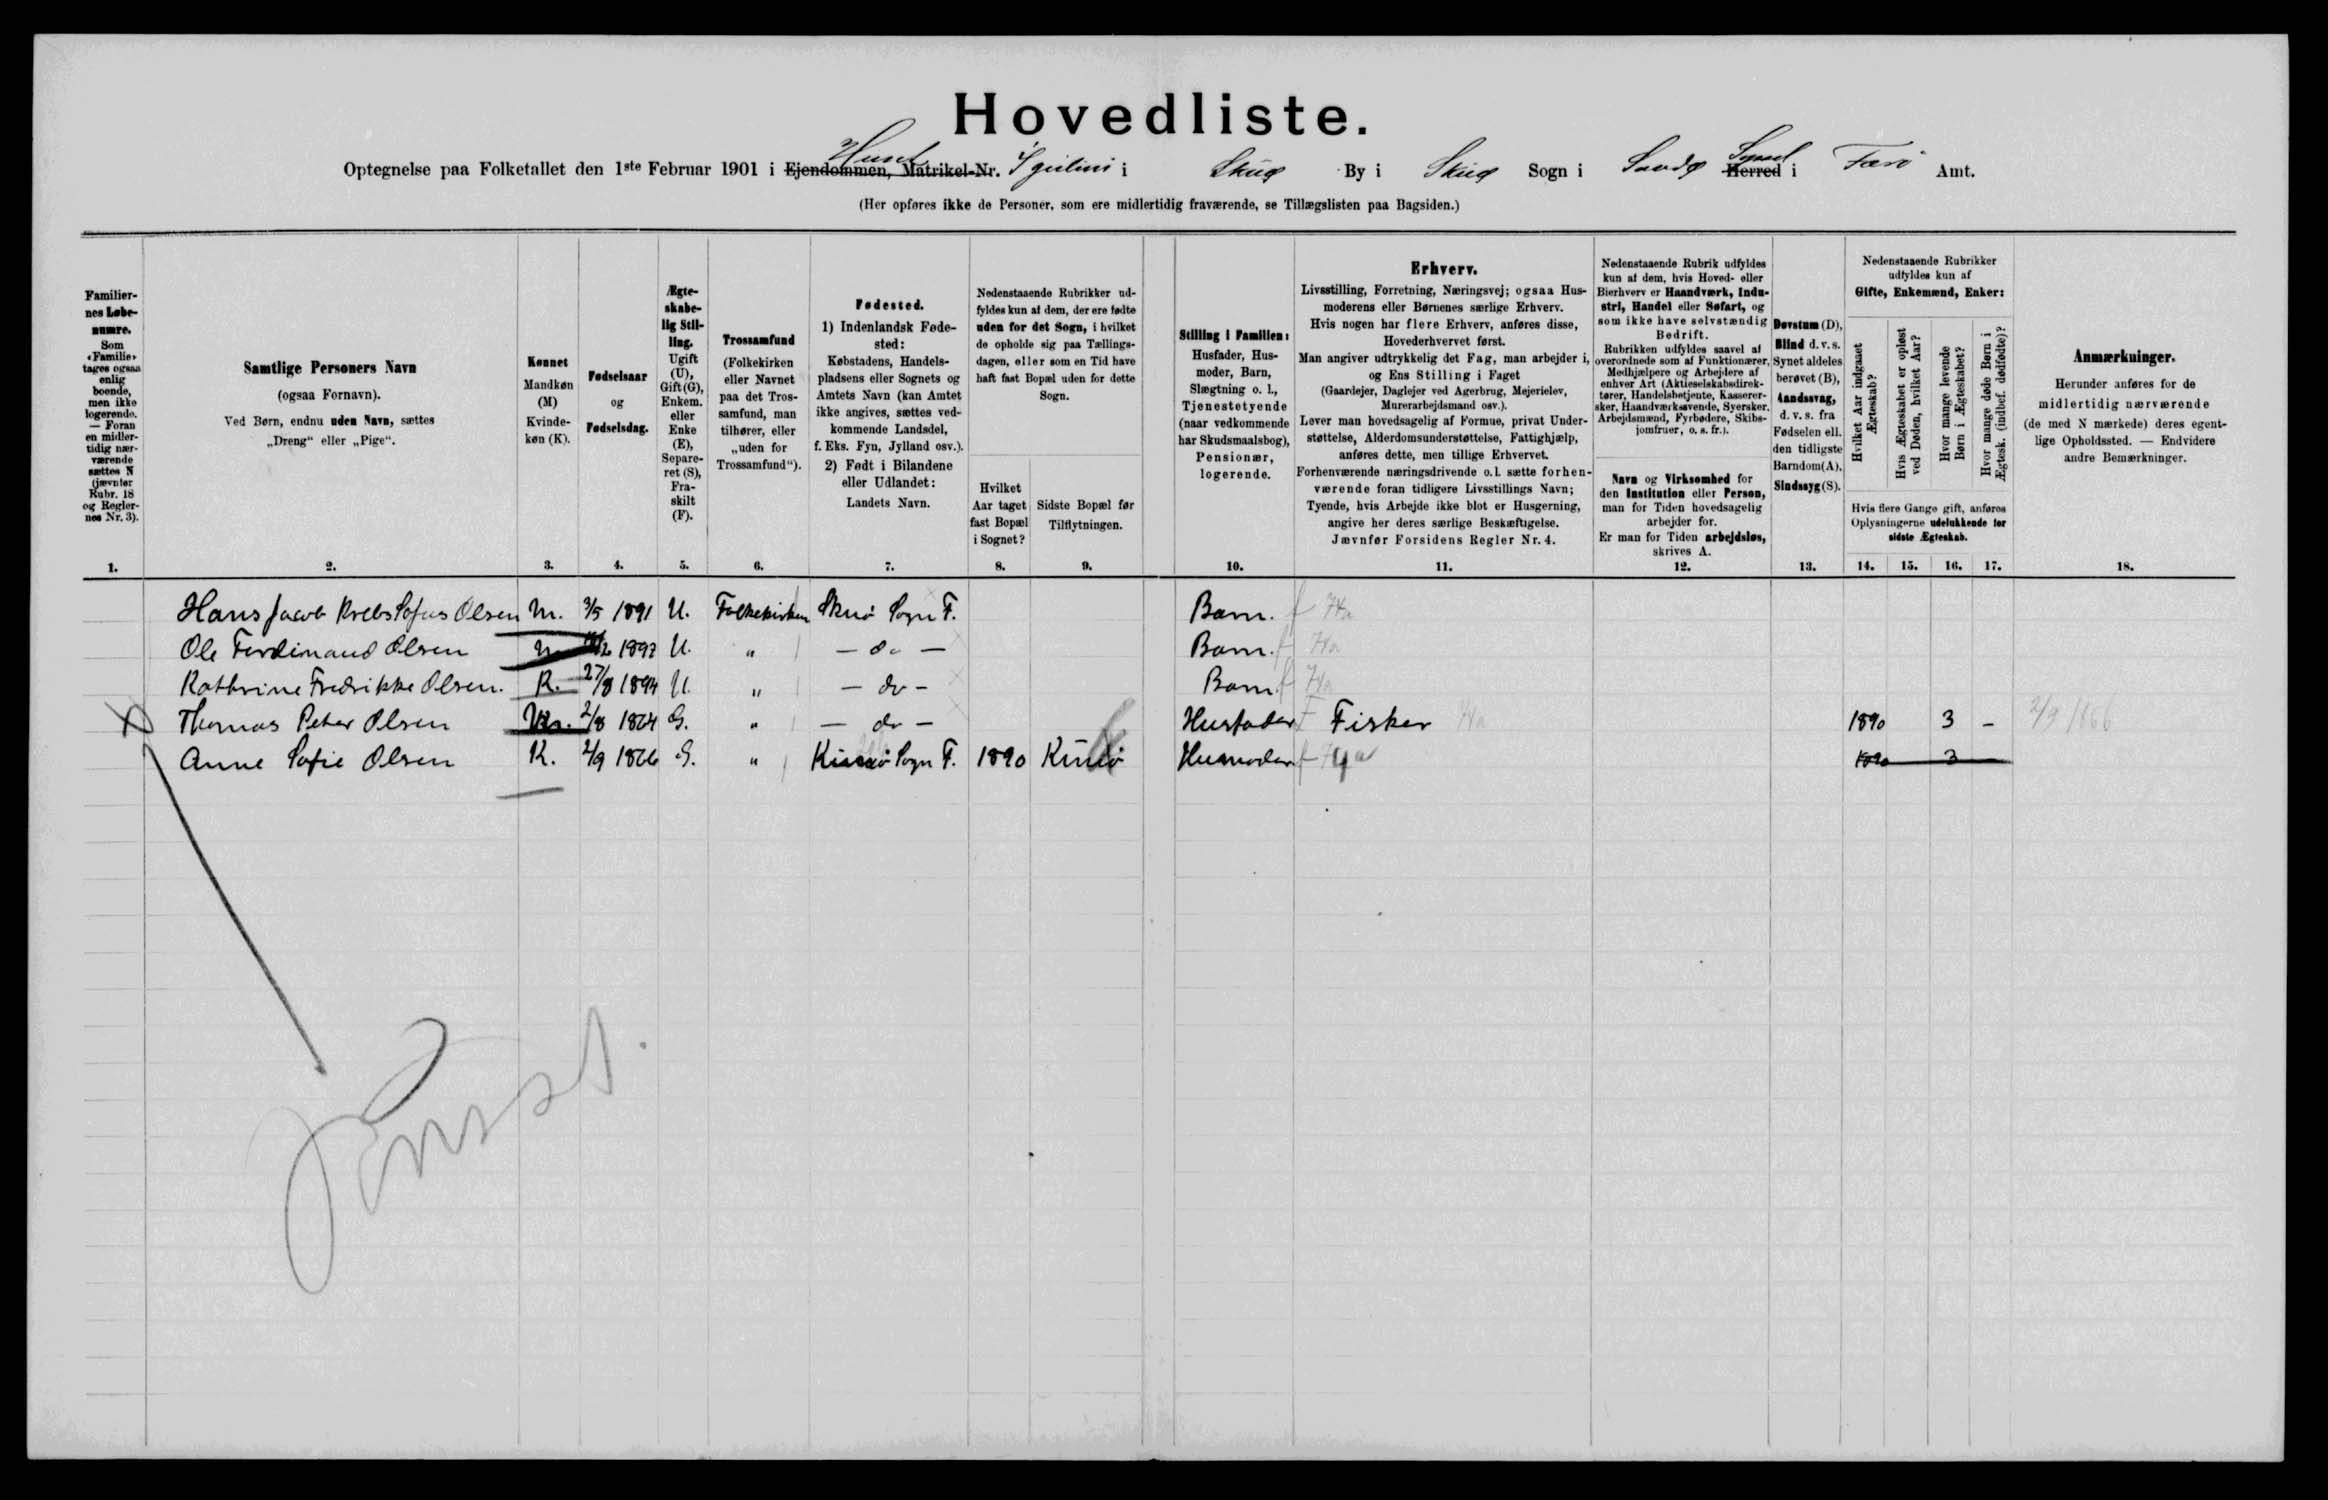 Hovedliste.
Optegnelse paa Folketallet den 1ste Februar 1901 i Ejendommen, Matrikel-Nr. Huset Igilini i Skuø By i Skuø Sogn i Sandø Herred Syssel i Færø Amt.
(Her opføres ikke de Personer, som ere midlertidig fraværende, se Tillægslisten paa Bagsiden.)
Familier-
nes Løbe-
numre.
Som
«Familie»
tages ogsaa
enlig
boende,
men ikke
logerende.
— Foran
en midler-
tidig nær-
værende
sættes N
(jævnfør
Rubr. 18
og Regler-
nes Nr. 3).
1.
Samtlige Personers Navn
(ogsaa Fornavn).
Ved Børn, endnu uden Navn, sættes
„Dreng“ eller „Pige“.
2.
Kønnet
Mandkøn
(M)
Kvinde-
køn (K).
3.
Fødselsaar
og
Fødselsdag.
4.
Ægte-
skabe-
lig Stil-
ling.
Ugift
(U),
Gift (G),
Enkem.
eller
Enke
(E),
Separe-
ret (S),
Fra-
skilt
(F).
5.
Trossamfund
(Folkekirken
eller Navnet
paa det Tros-
samfund, man
tilhører, eller
„uden for
Trossamfund“).
6.
Fødested.
1) Indenlandsk Føde-
sted:
Købstadens, Handels-
pladsens eller Sognets og
Amtets Navn (kan Amtet
ikke angives, sættes ved-
kommende Landsdel,
f. Eks. Fyn, Jylland osv.).
2) Født i Bilandene
eller Udlandet:
Landets Navn.
7.
Nedenstaaende Rubrikker ud-
fyldes kun af dem, der ere fødte
uden for det Sogn, i hvilket
de opholde sig paa Tællings-
dagen, eller som en Tid have
haft fast Bopæl uden for dette
Sogn.
Hvilket
Aar taget
fast Bopæl
i Sognet?
8.
Sidste Bopæl før
Tilflytningen.
9.
Stilling i Familien:
Husfader, Hus-
moder, Barn,
Slægtning o. l.,
Tjenestetyende
(naar vedkommende
har Skudsmaalsbog),
Pensionær,
logerende.
10.
Erhverv.
Livsstilling, Forretning, Næringsvej; ogsaa Hus-
moderens eller Børnenes særlige Erhverv.
Hvis nogen har flere Erhverv, anføres disse,
Hovederhvervet først.
Man angiver udtrykkelig det Fag, man arbejder i,
og Ens Stilling i Faget
(Gaardejer, Daglejer ved Agerbrug, Mejerielev,
Murerarbejdsmand osv.).
Lever man hovedsagelig af Formue, privat Under-
støttelse, Alderdomsunderstøttelse, Fattighjælp,
anføres dette, men tillige Erhvervet.
Forhenværende næringsdrivende o. l. sætte forhen-
værende foran tidligere Livsstillings Navn;
Tyende, hvis Arbejde ikke blot er Husgerning,
angive her deres særlige Beskæftigelse.
Jævnfør Forsidens Regler Nr. 4.
11.
Nedenstaaende Rubrik udfyldes
kun af dem, hvis Hoved- eller
Bierhverv er Haandværk, Indu-
stri, Handel eller Søfart, og
som ikke have selvstændig
Bedrift.
Rubrikken udfyldes saavel af
overordnede som af Funktionærer,
Medhjælpere og Arbejdere af
enhver Art (Aktieselskabsdirek-
tører, Handelsbetjente, Kasserer-
sker, Haandværkssvende, Syersker,
Arbejdsmænd, Fyrbødere, Skibs-
jomfruer, o. s. fr.).
Navn og Virksomhed for
den Institution eller Person,
man for Tiden hovedsagelig
arbejder for.
Er man for Tiden arbejdsløs,
skrives A.
12.
Døvstum (D),
Blind d. v. s.
Synet aldeles
berøvet (B),
Aandssvag,
d. v. s. fra
Fødselen ell.
den tidligste
Barndom (A),
Sindssyg (S).
13.
Nedenstaaende Rubrikker
udfyldes kun af
Gifte, Enkemænd, Enker:
Hvilket Aar indgaaet
Ægteskab?
Hvis Ægteskabet er opløst
ved Døden, hvilket Aar?
Hvor mange levende
Børn i Ægteskabet?
Hvor mange døde Børn i
Ægtesk. (indbef. dødfødte)?
Hvis flere Gange gift, anføres
Oplysningerne udelukkende for
sidste Ægteskab.
14. 15. 16. 17.
Anmærkninger.
Herunder anføres for de
midlertidig nærværende
(de med N mærkede) deres egent-
lige Opholdssted. — Endvidere
andre Bemærkninger.
18.
Hans Jacob Krebs Sofus Olsen M. 3/5 1891 U. Folkekirken Skuø Sogn F. Barn.
Ole Ferdinand Olsen M 1892 U. " — do — Barn.
Kathrine Fredrikke Olsen. K. 27/8 1894 U. " — do — Barn
Thomas Peter Olsen 2/8 1864 G. " — do — Husfader Fisker 1890 3 – 2/9 1866
Anne Sofie Olsen K. 2/9 1866 G. " Sogn F. 1890 Husmoder 1890 3